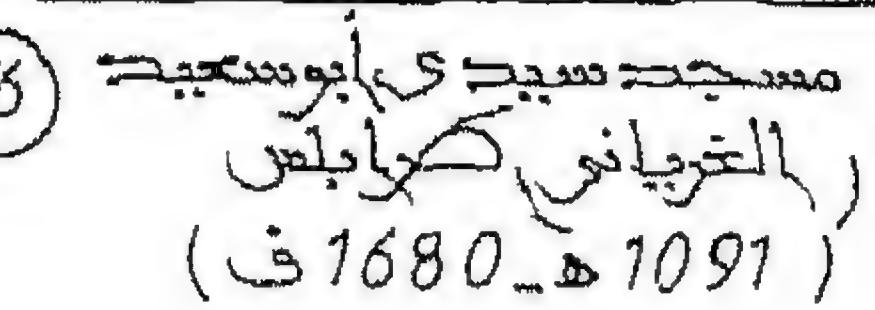 مسجد سيدى أبو سعيد
( التريانى ، طرابلس )
( 1091 هـ_1680 ف )